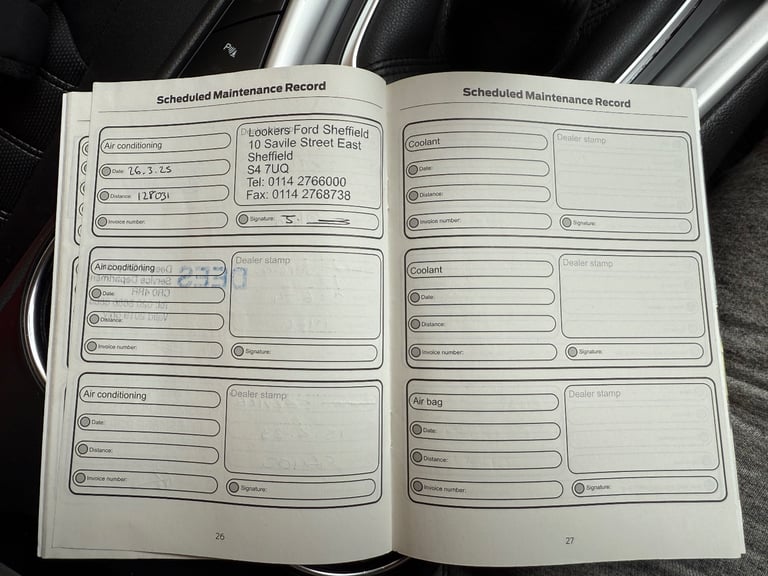 Scheduled Maintenance Record
Air conditioning
Date: 26.3.25
Distance: 128031
Invoice number:
Lookers Ford Sheffield
10 Savile Street East
Sheffield
S4 7UQ
Tel: 0114 2766000
Fax: 0114 2768738
Signature:
Air conditioning
Date:
Distance:
Invoice number:
Dealer stamp
Signature:
Air conditioning
Date:
Distance:
Invoice number:
Dealer stamp
Signature:
26
Scheduled Maintenance Record
Coolant
Date:
Distance:
Invoice number:
Dealer stamp
Signature:
Coolant
Date:
Distance:
Invoice number:
Dealer stamp
Signature:
Air bag
Date:
Distance:
Invoice number:
Dealer stamp
Signature:
27